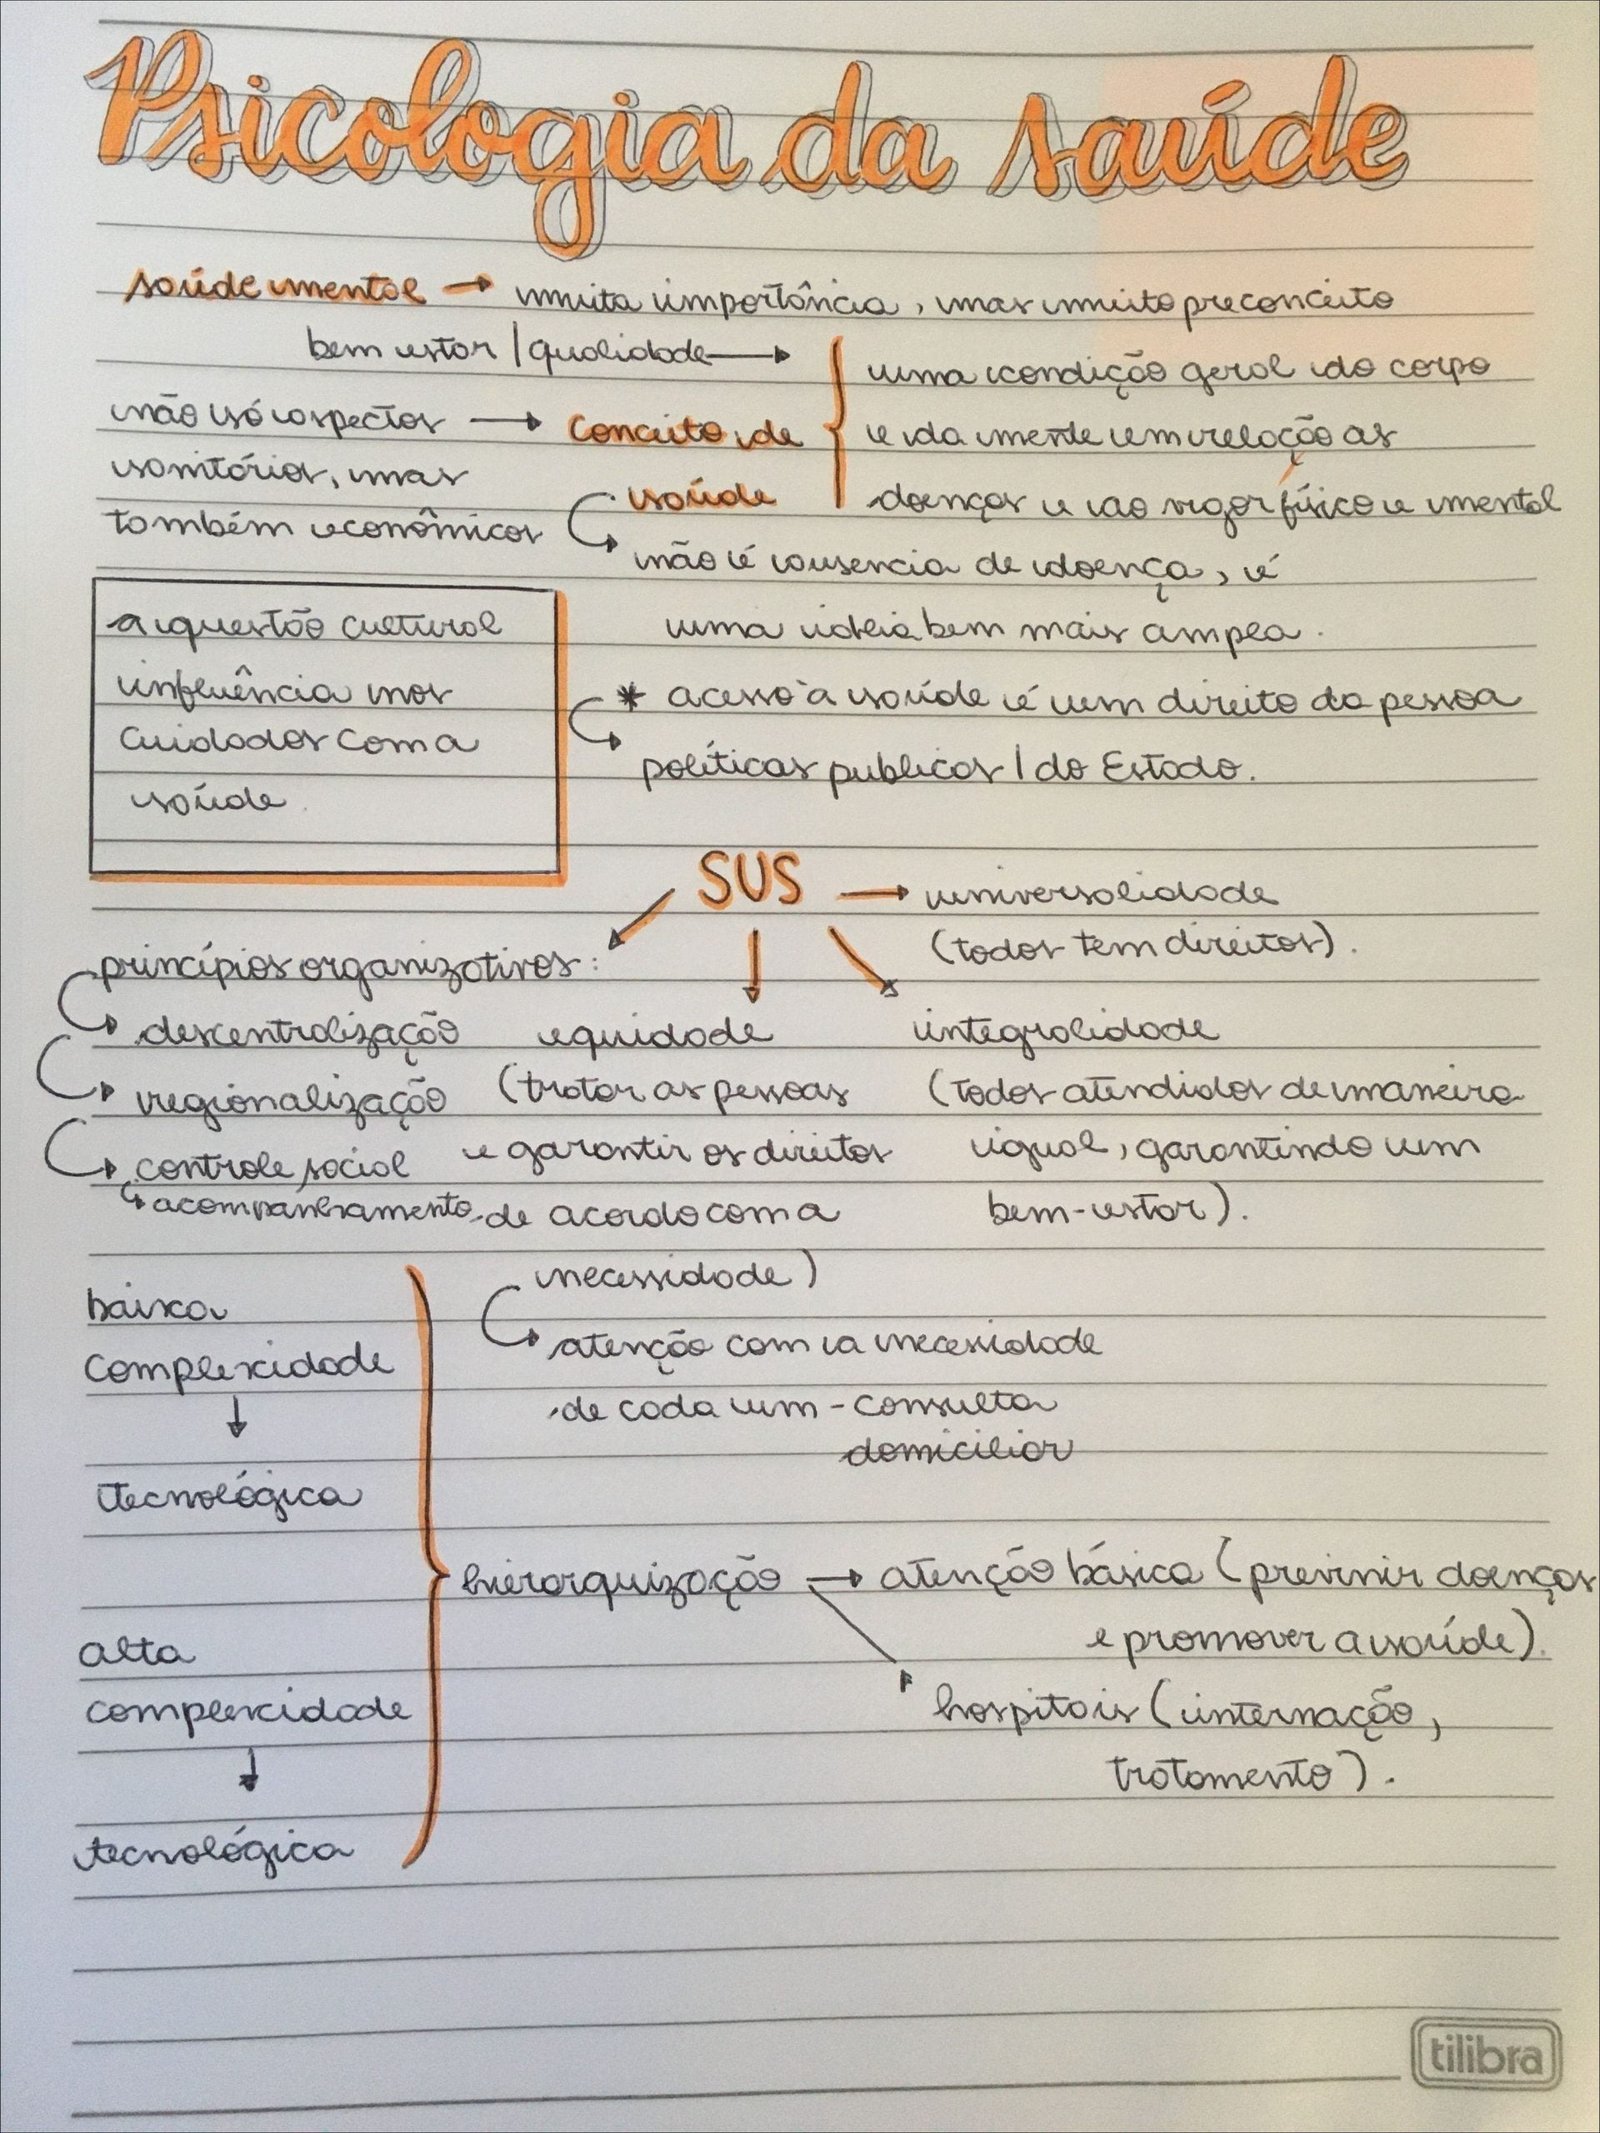 Psicologia da saúde
saúde mental → muita importância, mas muito preconceito
bem estar / qualidade →
uma condição geral do corpo
e da mente em relação as
doenças e ao vigor físico e mental
não só aspectos → conceito de
sanitários, mas saúde
também econômicos
não é ausencia de doença, é
uma ideia bem mais ampla.
a questão cultural
influência nos
cuidados com a
saúde.
* acesso à saúde é um direito da pessoa
políticas publicas / do Estado.
SUS → universalidade
(todos tem direitos).
princípios organizativos:
descentralização
regionalização
controle social
acompanhamento
equidade
(tratar as pessoas
e garantir os direitos
de acordo com a
necessidade)
atenção com a necessidade
de cada um - consulta
domiciliar
integralidade
(todos atendidos de maneira
igual, garantindo um
bem-estar).
baixa
complexidade
↓
tecnológica
alta
complexidade
↓
tecnológica
hierarquização → atenção básica (previnir doenças
e promover a saúde).
hospitais (internação,
tratamento).
tilibra